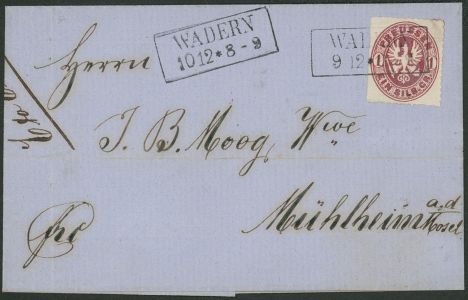 WADERN
10 12 * 8 - 9
WAD
9 12 *
PREUSSEN
1 1
EIN SILB. GR.
Herrn
J. B. Moog, Wwe
Mühlheim a. d. Mosel
frc